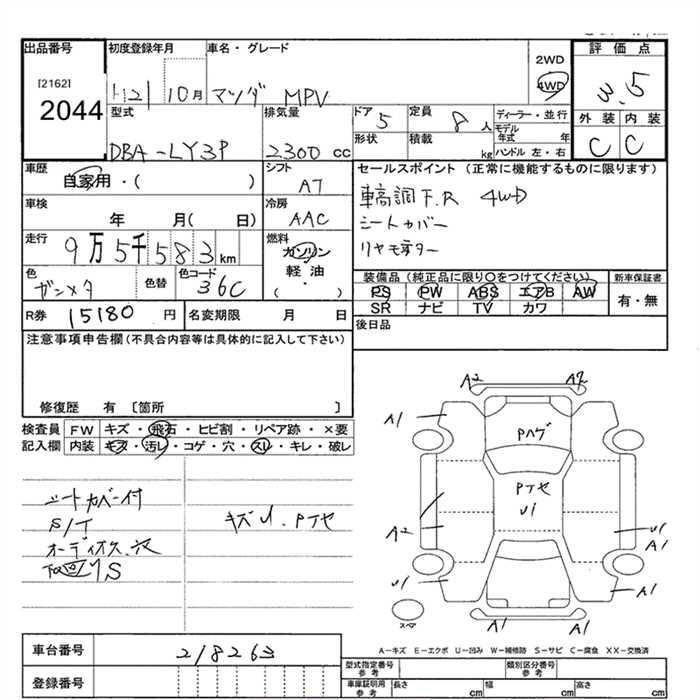 出品番号 初度登録年月 車名・グレード 2WD 評価点
[2162] H21 10月 マツダ MPV 4WD 3.5
2044 型式 排気量 ドア 5 定員 8人 ディーラー・並行 外装 内装
モデル年式 年
DBA-LY3P 2300cc 形状 積載 kg ハンドル 左・右 C C
車歴 自家用・( ) シフト AT セールスポイント (正常に機能するものに限ります)
車高調 F.R 4WD
車検 年 月( 日) 冷房 AAC シートカバー
走行 9万5千583km 燃料 ガソリン リヤモニター
軽油
( ・ )
色 ガンメタ 色替 色コード 36C 装備品(純正品に限り○をつけてください) 新車保証書
PS PW ABS エアB AW 有・無
SR ナビ TV カワ
R券 15180円 名変期限 月 日 後日品
注意事項申告欄(不具合内容等は具体的に記入して下さい)
修復歴 有 [箇所 ]
検査員 FW キズ・飛石・ヒビ割・リペア跡・×要
記入欄 内装 キズ・汚レ・コゲ・穴・スレ・キレ・破レ
シートカバー付
S/T
オーディオス穴
下廻りS
キズU.Pアセ
A2 A2
A1
Pハゲ
Pアセ
U1
A2 U1
A1
U1 A1
A1 A1
スペア
A-キズ E-エクボ U-凹み W-補修跡 S-サビ C-腐食 XX-交換済
車台番号 218263
型式指定番号 参考 類別区分番号 参考
登録番号 車庫証明用 参考 長さ cm 幅 cm 高さ cm